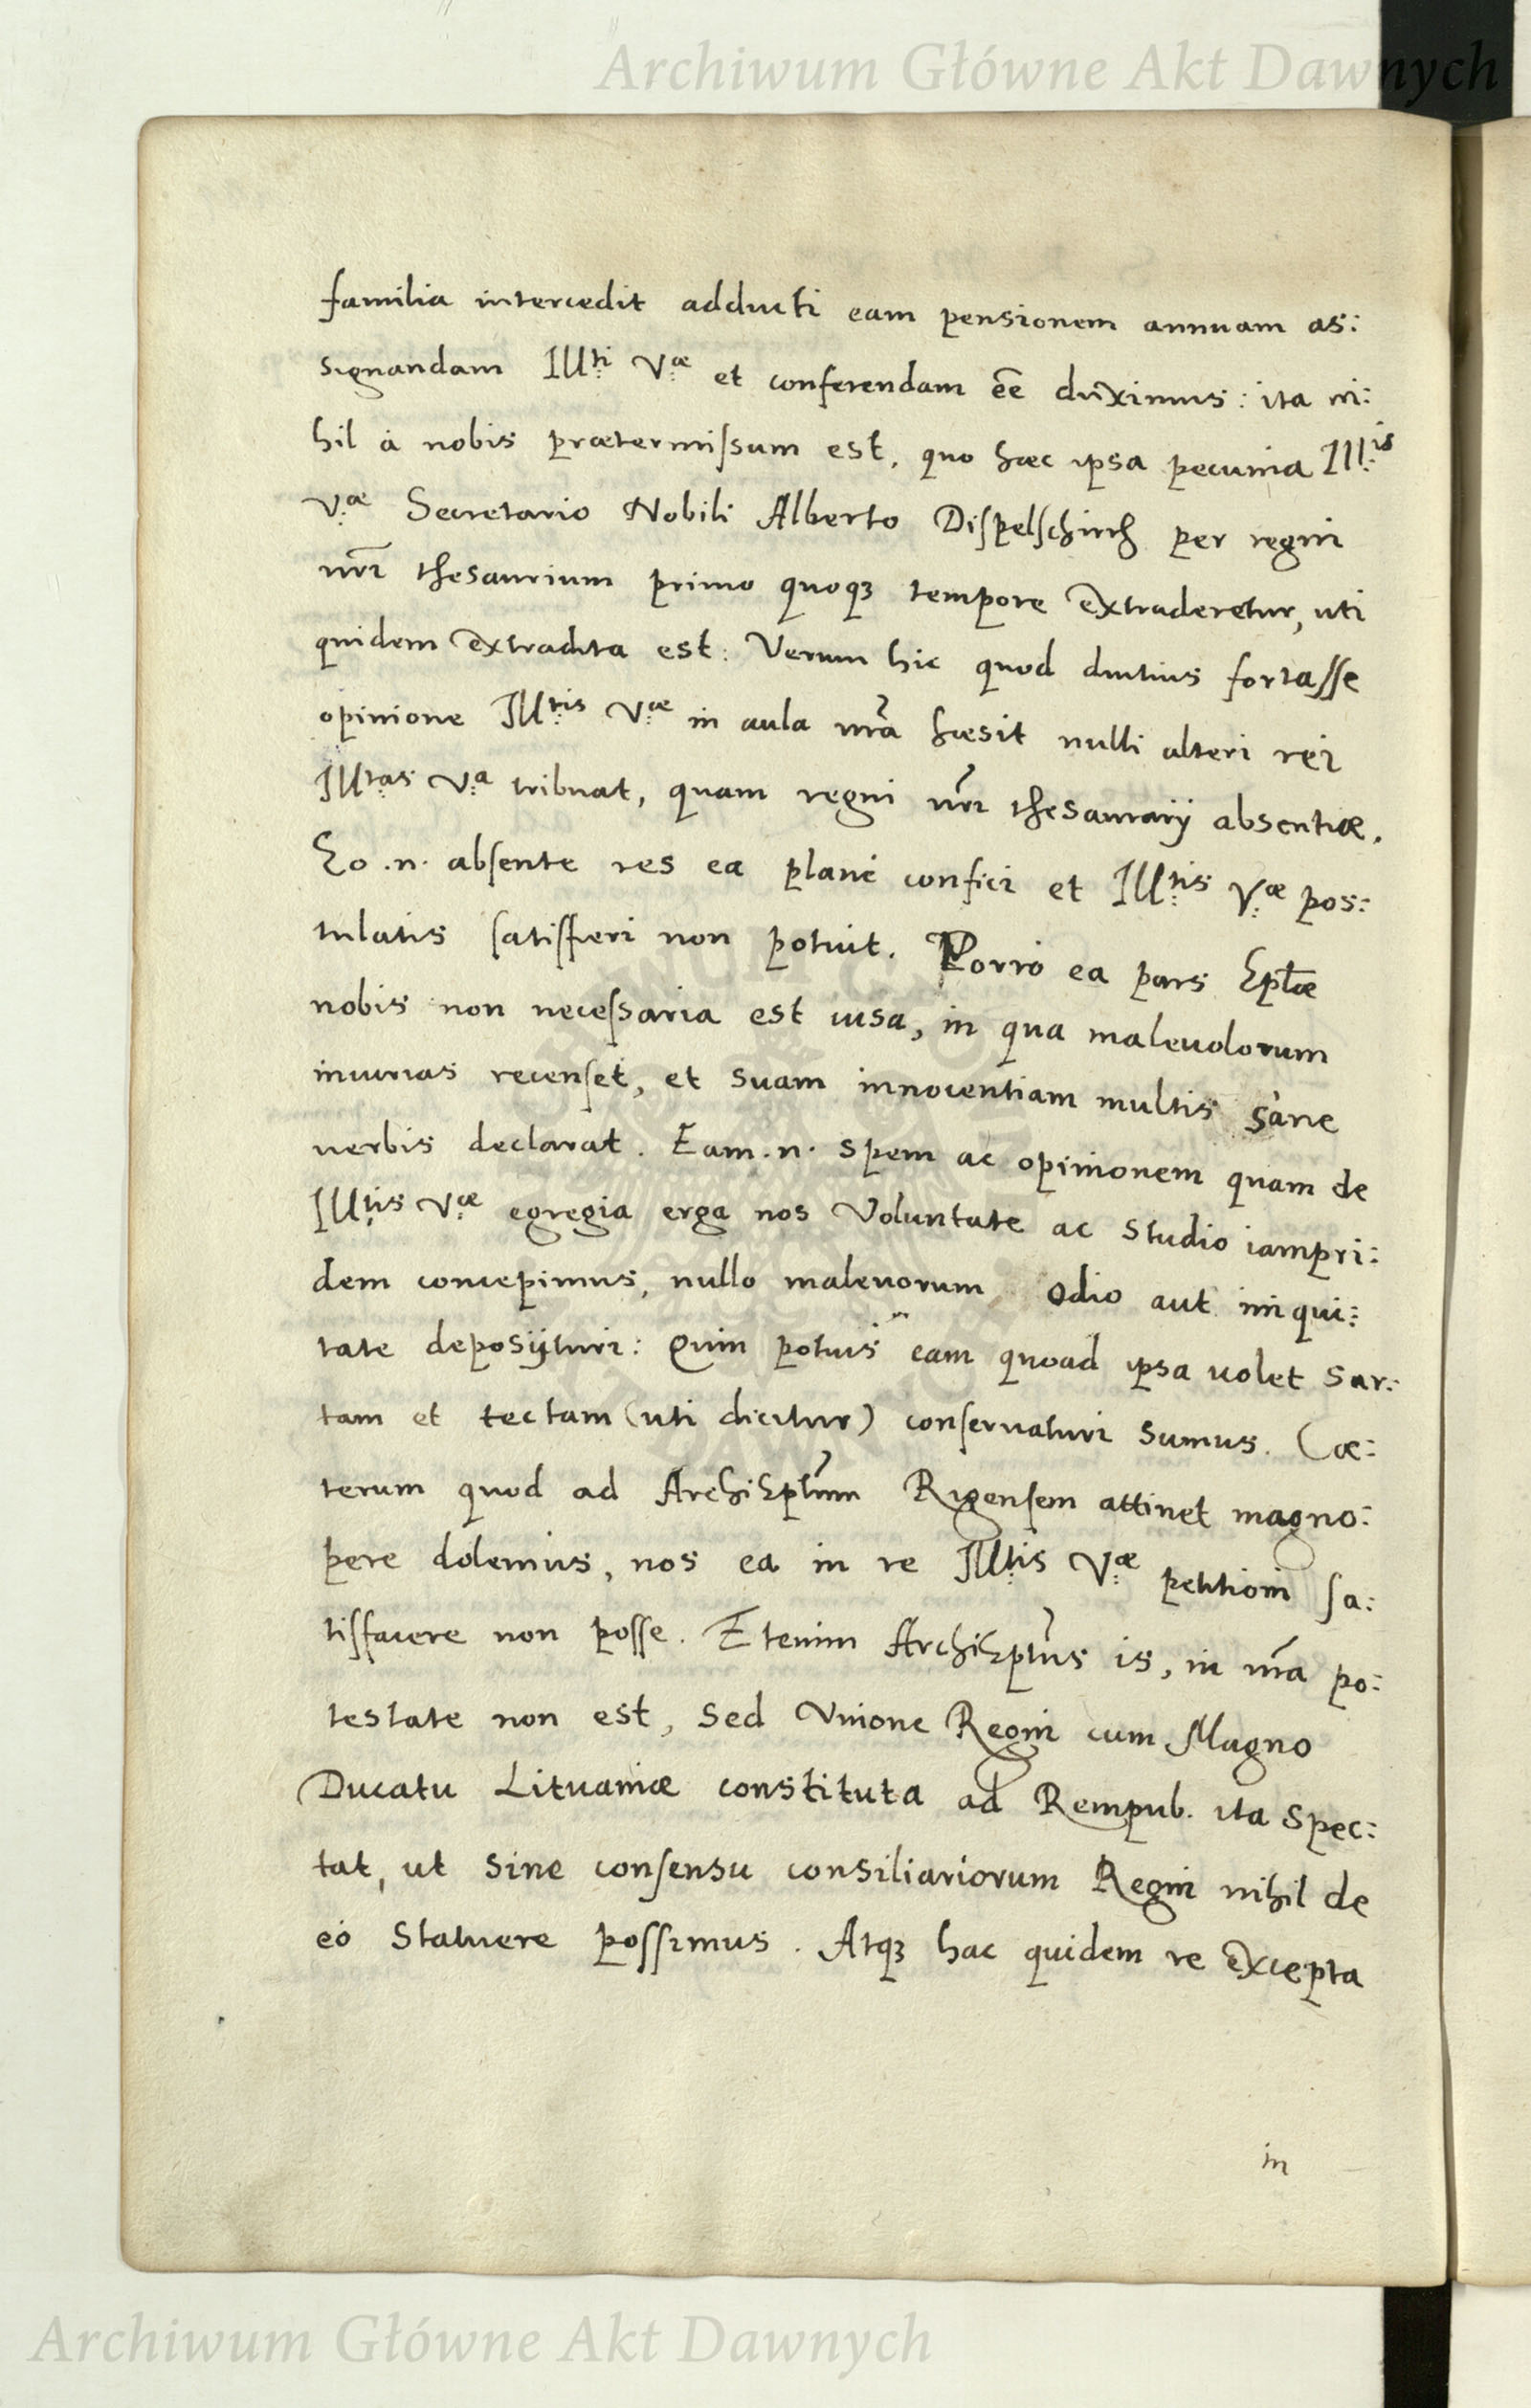 Archiwum Główne Akt Dawnych
familia intercedit adducti eam pensionem annuam as:
signandam Ill:ti V:æ et conferendam eē duximus: ita ni:
hil à nobis prætermissum est, quo hæc ipsa pecunia Ill:is
V:æ Secretario Nobili Alberto Dispelschirch per regni
nr̄i thesaurium primo quoqꝫ tempore extraderetur, uti
quidem extradita est: Verum hic quod diutius fortasse
opinione Ill:tis V:æ in aula nr̄a hæsit nulli alteri rei
Ill:tas V:a tribuat, quam regni nr̄i thesaurarij absentiæ.
Eo .n. absente res ea planè confici et Ill:tis V:æ pos:
tulatis satisfieri non potuit. Porrò ea pars Epl̄æ
nobis non necessaria est uisa, in qua maleuolorum
iniurias recenset, et suam innocentiam multis sane
uerbis declarat. Eam .n. spem ac opinionem quam de
Ill:tis V:æ egregia erga nos Voluntate ac studio iampri:
dem concepimus, nullo maleuorum odio aut iniqui:
tate deposituri: Quin potius eam quoad ipsa uolet Sar:
tam et tectam (uti dicitur) conseruaturi sumus. Cæ:
terum quod ad ArchiEpt̄um Rigensem attinet magno:
pere dolemus, nos ea in re Ill:tis V:æ petitioni sa:
tisfacere non posse. Etenim ArchiEpt̄us is, in nr̄a po:
testate non est, sed Vnione Regni cum Magno
Ducatu Lituaniæ constituta ad Rempub. ita spec:
tat, ut sine consensu consiliariorum Regni nihil de
eò statuere possimus. Atqꝫ hac quidem re excepta
in
Archiwum Główne Akt Dawnych